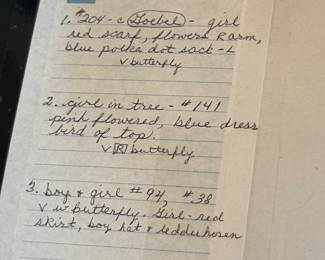 1. #204 - c Goebel - girl
red scarf, flowers R arm,
blue polka dot sack - L
v butterfly
2. girl in tree - #141
pink flowered, blue dress
bird of top.
V R butterfly
3. boy & girl #94, #38
V w butterfly. Girl - red
skirt, boy hat & ledduhosen